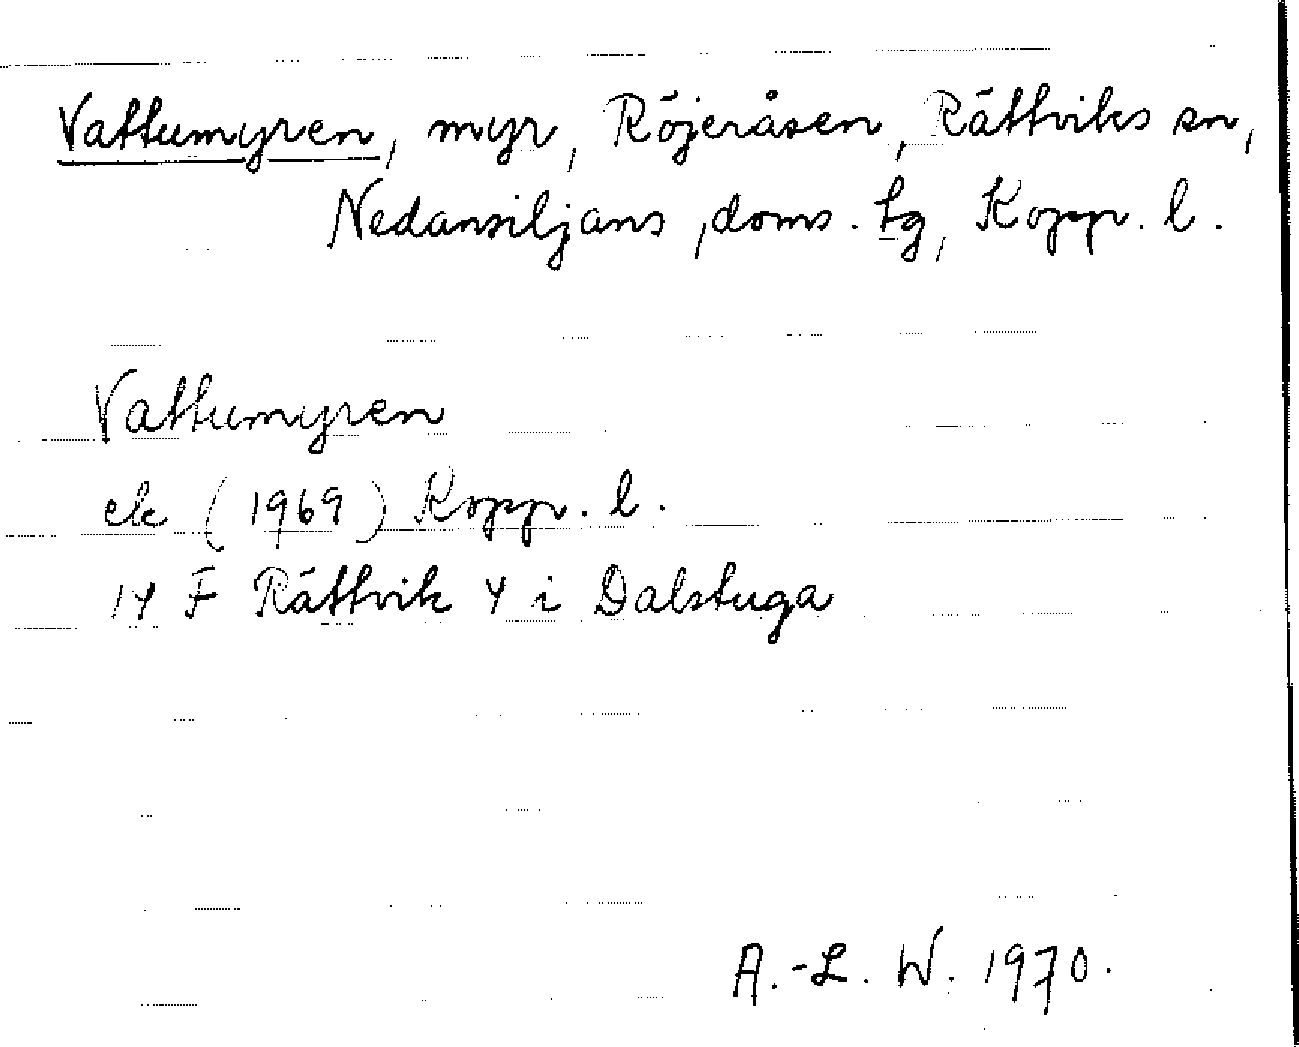 Vattumyren, myr, Röjeråsen, Rättviks sn,
Nedansiljans, doms. tg, Kopp. l.
Vattumyren
ek (1969) Kopp. l.
14 F Rättvik 4 i Dalstuga
A.-L. W. 1970.